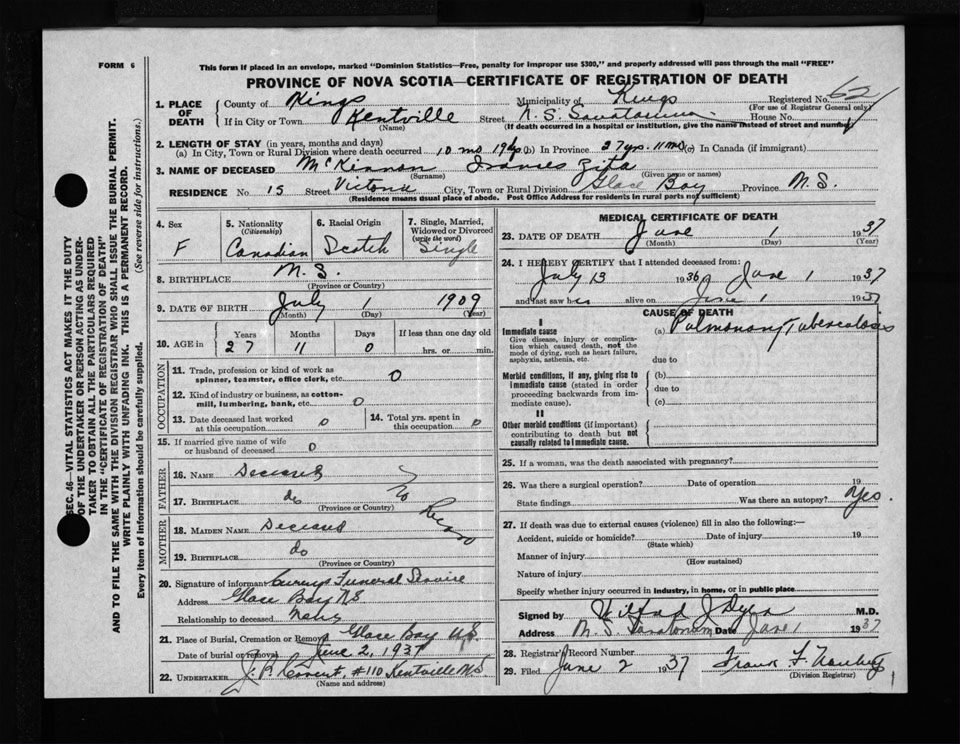 FORM 6
This form if placed in an envelope, marked "Dominion Statistics—Free, penalty for improper use $300," and properly addressed will pass through the mail "FREE"
PROVINCE OF NOVA SCOTIA—CERTIFICATE OF REGISTRATION OF DEATH
1. PLACE OF DEATH County of Kings Municipality of Kings Registered No. 62
(For use of Registrar General only)
If in City or Town Kentville Street N.S. Sanatorium House No.
(Name) (If death occurred in a hospital or institution, give the name instead of street and number)
2. LENGTH OF STAY (in years, months and days)
(a) In City, Town or Rural Division where death occurred 10 mo 19 (b) In Province 27 yrs. 11 mo (c) In Canada (if immigrant)
3. NAME OF DECEASED McKinnon Frances Zita
(Surname) (Given name or names)
RESIDENCE No. 15 Street Victoria City, Town or Rural Division Glace Bay Province N.S.
(Residence means usual place of abode. Post Office Address for residents in rural parts not sufficient)
4. Sex F
5. Nationality (Citizenship) Canadian
6. Racial Origin Scotch
7. Single, Married, Widowed or Divorced (write the word) Single
8. BIRTHPLACE N.S.
(Province or Country)
9. DATE OF BIRTH July 1 1909
(Month) (Day) (Year)
10. AGE in Years 27 Months 11 Days 0 If less than one day old hrs. or min.
OCCUPATION
11. Trade, profession or kind of work as spinner, teamster, office clerk, etc. 0
12. Kind of industry or business, as cotton-mill, lumbering, bank, etc. 0
13. Date deceased last worked at this occupation 0
14. Total yrs. spent in this occupation 0
15. If married give name of wife or husband of deceased 0
FATHER
16. NAME Deceased
17. BIRTHPLACE do
(Province or Country)
No Record
MOTHER
18. MAIDEN NAME Deceased
19. BIRTHPLACE do
(Province or Country)
20. Signature of informant Currys Funeral Service
Address Glace Bay NS
Relationship to deceased None
21. Place of Burial, Cremation or Removal Glace Bay NS.
Date of burial or removal June 2, 1937
22. UNDERTAKER #110 Kentville NS
(Name and address)
MEDICAL CERTIFICATE OF DEATH
23. DATE OF DEATH June 1 1937
(Month) (Day) (Year)
24. I HEREBY CERTIFY that I attended deceased from:
July 13 1936 June 1 1937
and last saw her alive on June 1 1937
CAUSE OF DEATH
I
Immediate cause (a) Pulmonary Tuberculosis
Give disease, injury or complication which caused death, not the mode of dying, such as heart failure, asphyxia, asthenia, etc.
due to
Morbid conditions, if any, giving rise to immediate cause (stated in order proceeding backwards from immediate cause).
(b)
due to
(c)
II
Other morbid conditions (if important) contributing to death but not causally related to immediate cause.
25. If a woman, was the death associated with pregnancy?
26. Was there a surgical operation? Date of operation 19
State findings Was there an autopsy? Yes.
27. If death was due to external causes (violence) fill in also the following:—
Accident, suicide or homicide? Date of injury 19
(State which)
Manner of injury
(How sustained)
Nature of injury
Specify whether injury occurred in industry, in home, or in public place
Signed by M.D.
Address N.S. Sanatorium Date June 1 1937
28. Registrar's Record Number
29. Filed June 2 1937 Frank F.
(Division Registrar)
SEC. 46—VITAL STATISTICS ACT MAKES IT THE DUTY
OF THE UNDERTAKER OR PERSON ACTING AS UNDER-
TAKER TO OBTAIN ALL THE PARTICULARS REQUIRED
IN THE "CERTIFICATE OF REGISTRATION OF DEATH"
AND TO FILE THE SAME WITH THE DIVISION REGISTRAR WHO SHALL ISSUE THE BURIAL PERMIT.
WRITE PLAINLY WITH UNFADING INK. THIS IS A PERMANENT RECORD.
Every item of information should be carefully supplied. (See reverse side for instructions.)